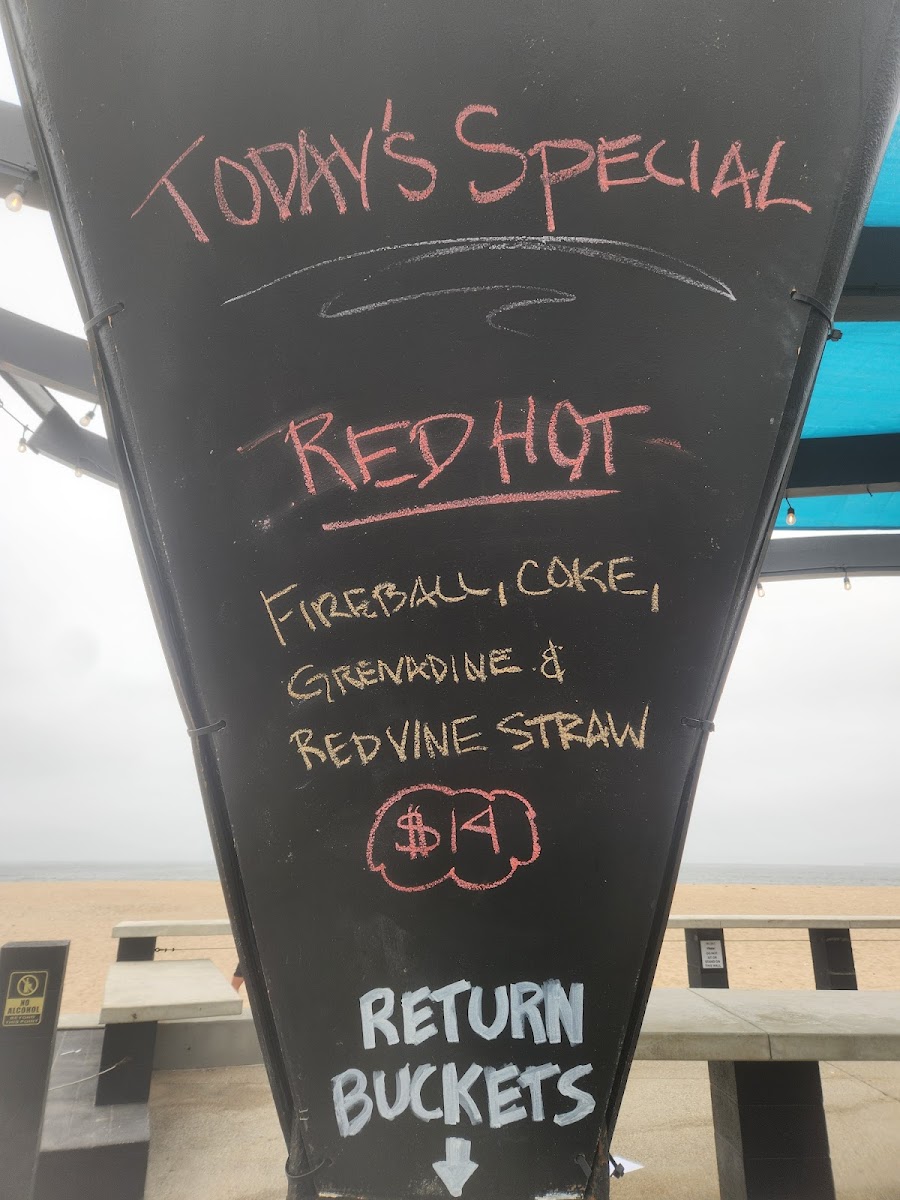 TODAY'S SPECIAL
RED HOT
FIREBALL, COKE,
GRENADINE &
REDVINE STRAW
$14
RETURN
BUCKETS
NO
ALCOHOL